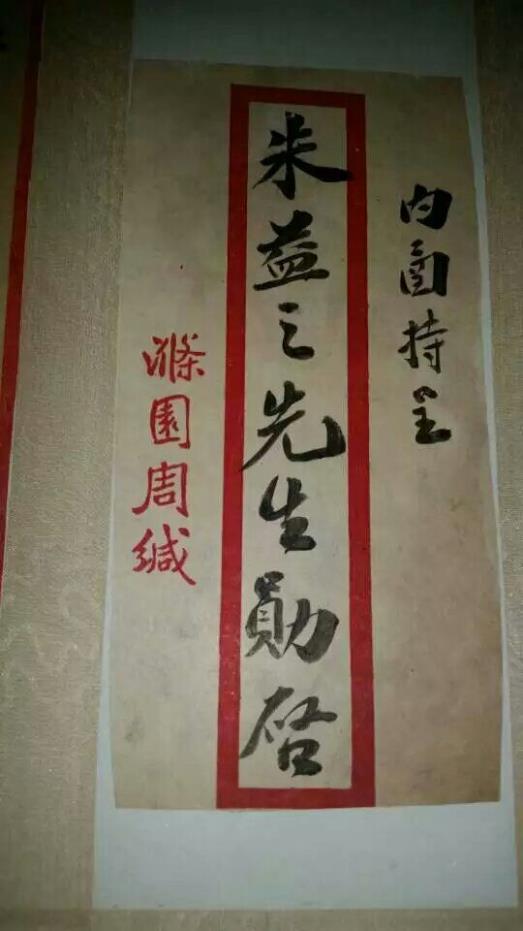 内圅持呈
朱益之先生勛启
滌園周緘